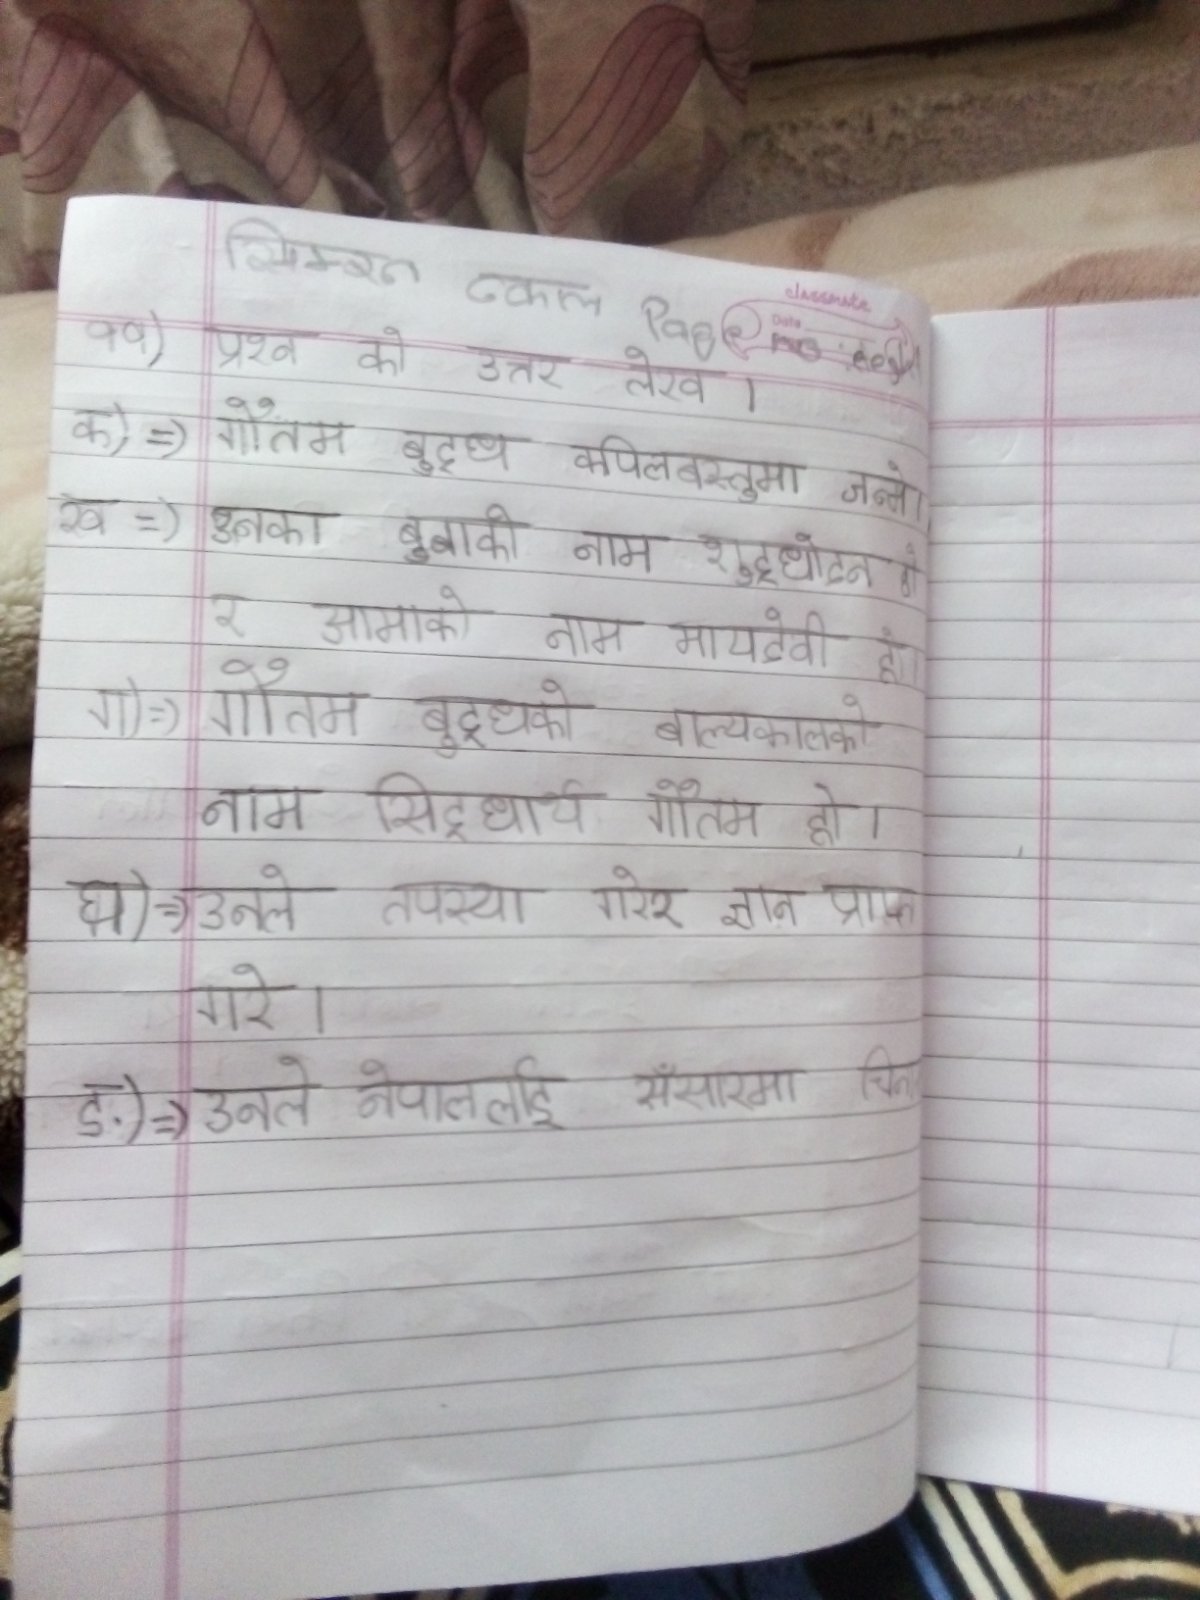 सिमरन ढकाल Page classmate
Date
११) प्रश्न को उत्तर लेख ।
क) => गौतम बुद्ध कपिलबस्तुमा जन्मे।
ख => उनका बुबाको नाम शुद्धोदन हो
र आमाको नाम मायदेवी हो।
ग) => गौतम बुद्धको बाल्यकालको
नाम सिद्धार्थ गौतम हो ।
घ) => उनले तपस्या गरेर ज्ञान प्राप्त
गरे ।
ङ) => उनले नेपाललाई सँसारमा